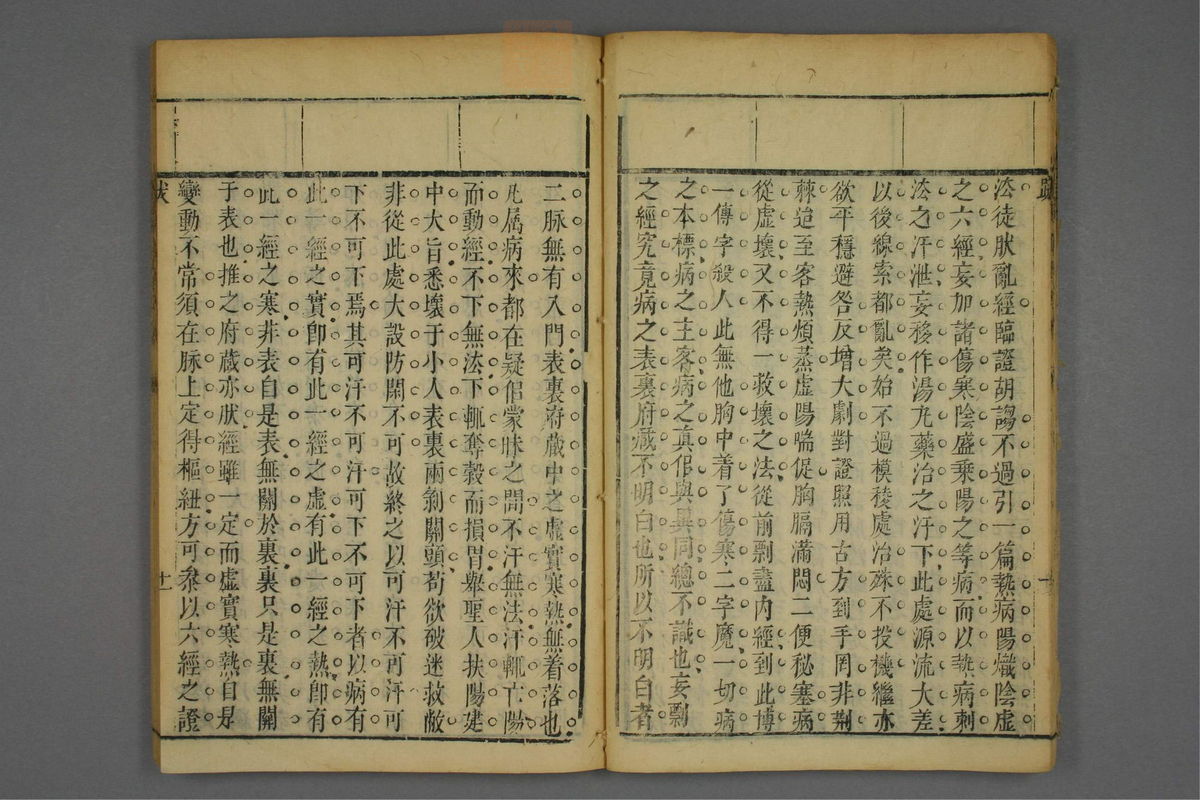 䟦
法徒肰亂經臨證胡謅不過引一篇𤍠病陽熾陰虛
之六經妄加諸傷寒陰盛乘陽之等病而以𤍠病刺
法之汗泄妄移作湯先藥治之汗下此處源流大差
以後線索都亂矣始不過模稜處治殊不投機繼亦
欲平穩避咎反增大劇對證照用古方到手罔非荆
棘迨至客熱煩蒸虛陽喘促胸膈滿悶二便秘塞病
從虛壞又不得一救壞之法從前剽盡內經到此博
一傳字殺人此無他胸中着了傷寒二字魔一切病
之本標病之主客病之眞假與異同總不識也妄剽
之經究竟病之表裏府藏不明白也所以不明白者
十
二脉無有入門表裏府藏中之虛實寒熱無着落也
凡属病來都在疑倌蒙昧之間不汗無法汗輒亡陽
而動經不下無法下輒奪穀而損胃舉聖人扶陽建
中大旨悉壞于小人表裏兩剝關頭苟欲破迷救敝
非從此處大設防閑不可故終之以可汗不可汗可
下不可下焉其可汗不可汗可下不可下者以病有
此一經之實卽有此一經之虛有此一經之熱卽有
此一經之寒非表自是表無關於裏裏只是裏無關
于表也推之府藏亦肰經雖一定而虛實寒熱自是
變動不常須在脉上定得樞紐方可叅以六經之證
十一